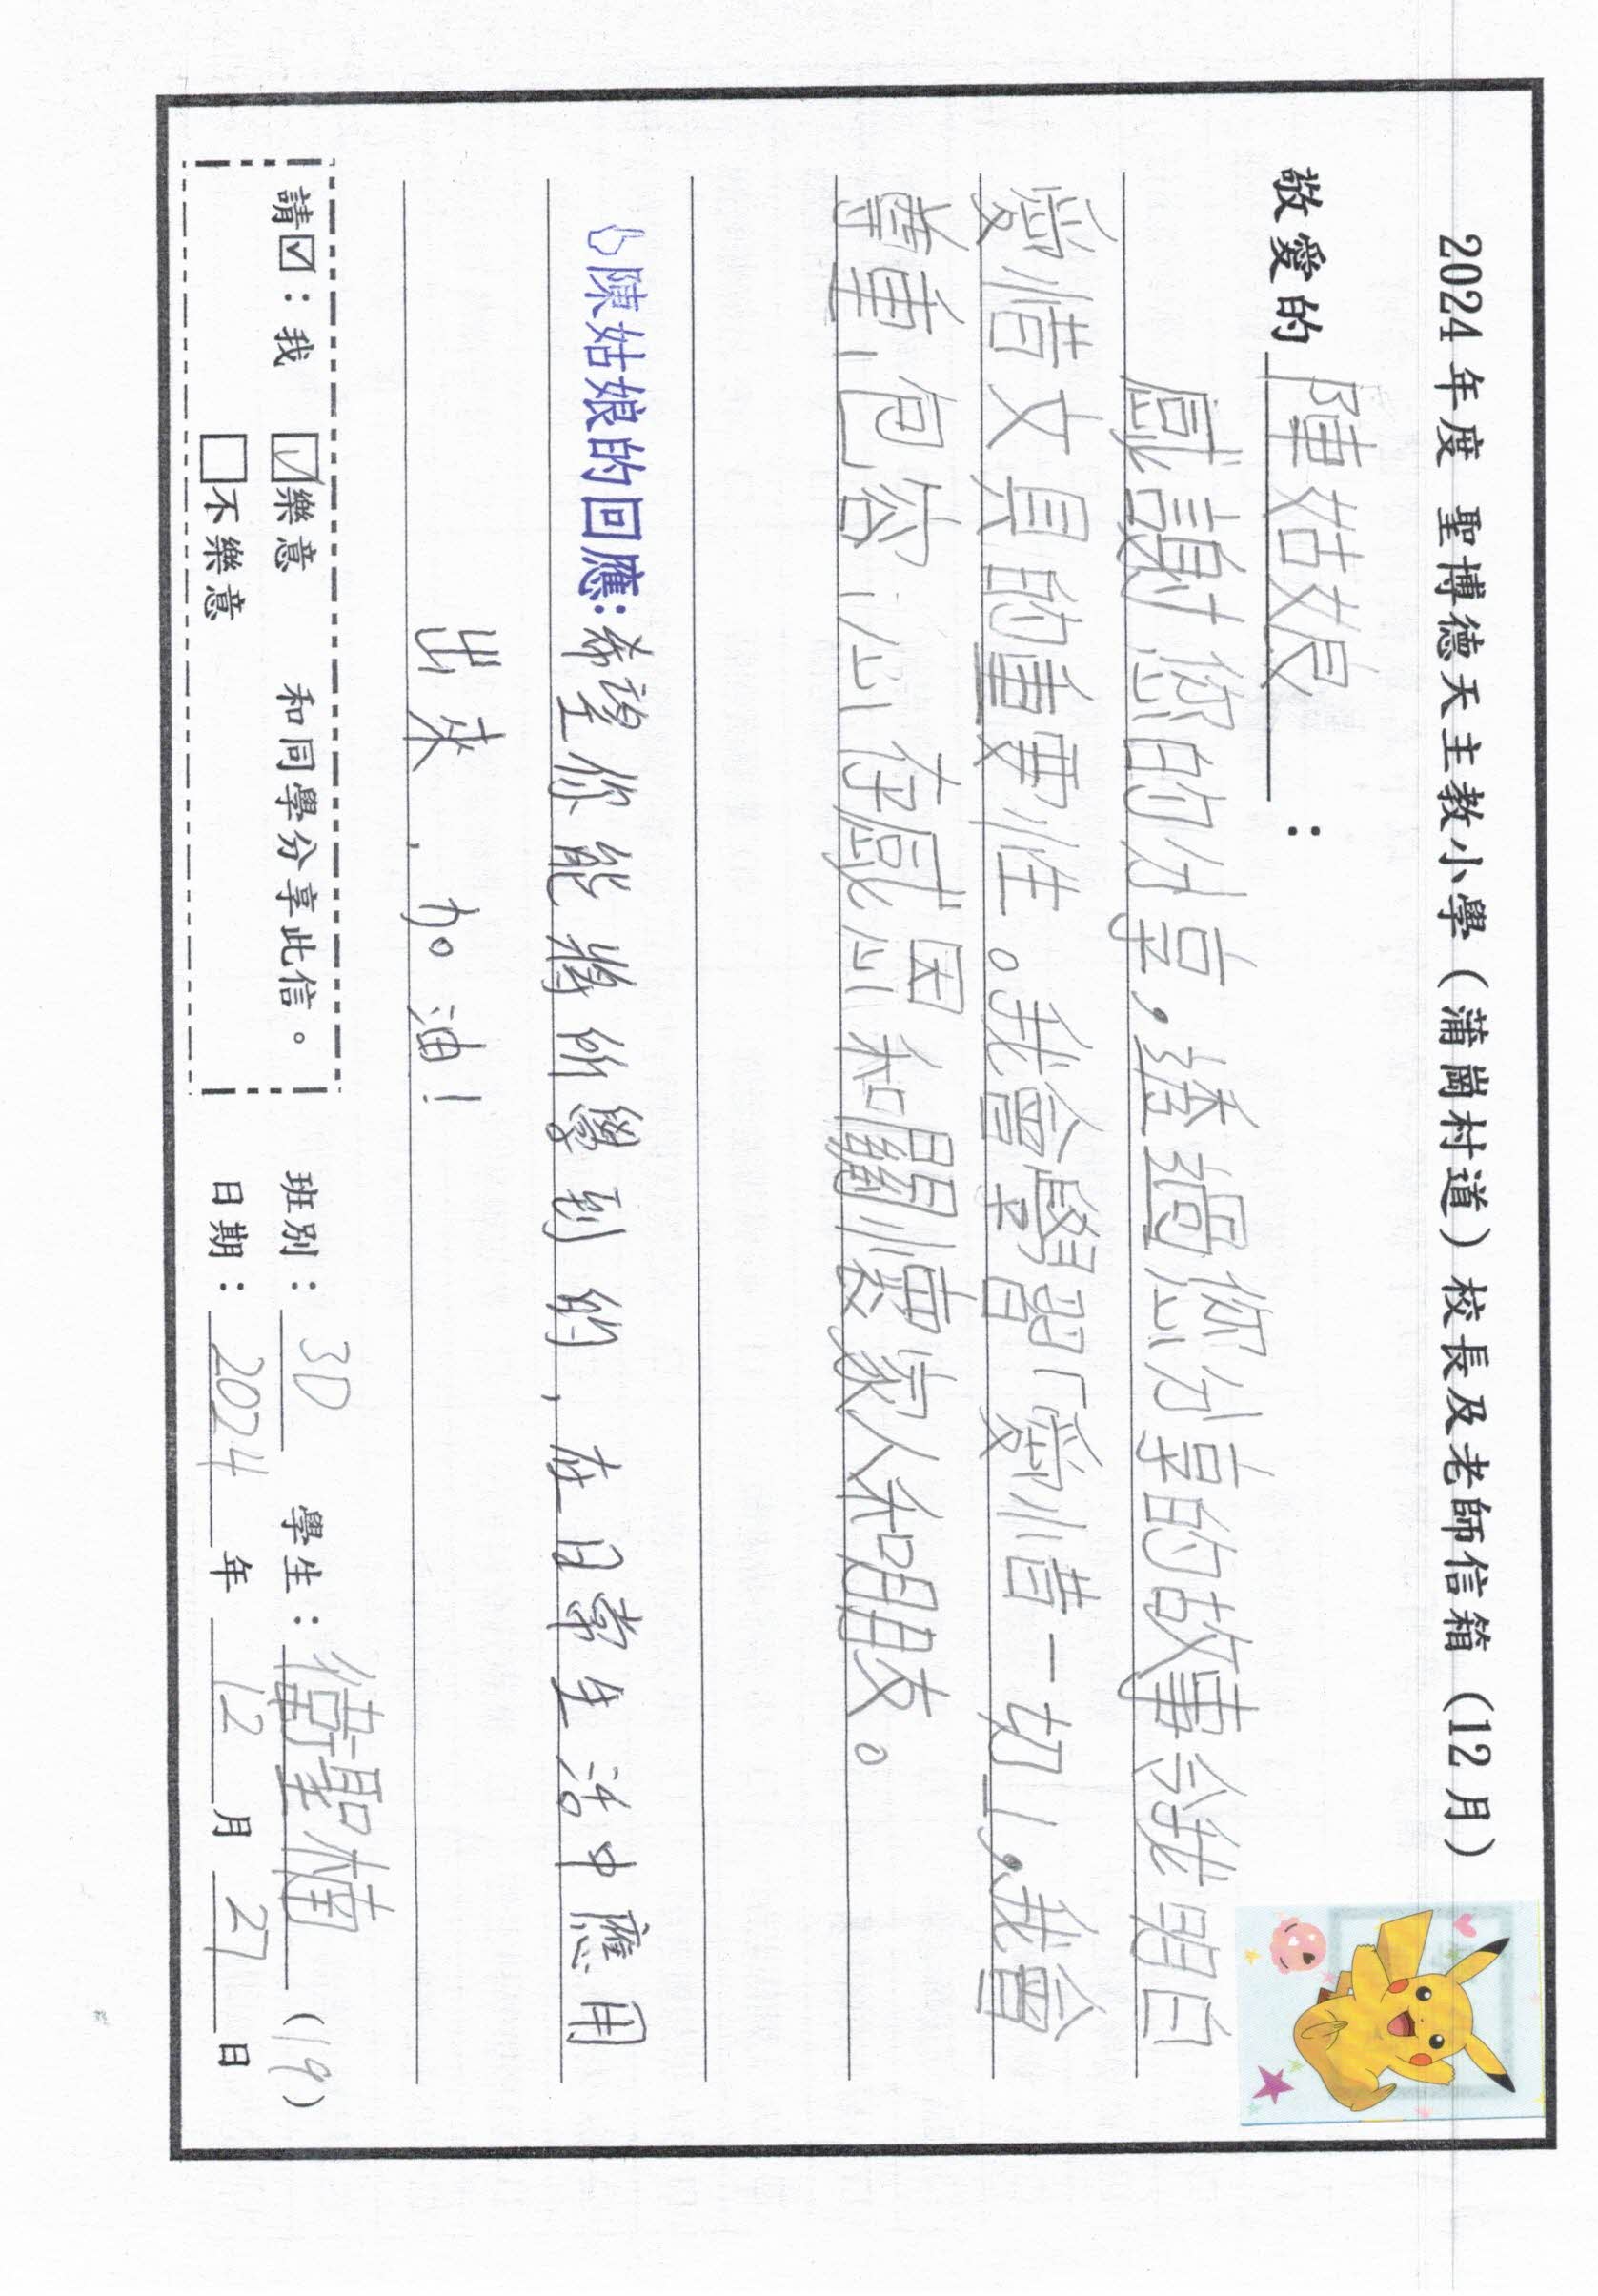 2024 年度 聖博德天主教小學（蒲崗村道）校長及老師信箱（12 月）
敬愛的 陳姑娘 ：
感謝您的分享，透過您分享的故事令我明白
愛惜文具的重要性。我會學習「愛惜一切」，我會
尊重、包容、心存感恩和關懷家人和朋友。
陳姑娘的回應：希望你能將所學到的，在日常生活中應用
出來，加油！
請☑：我 ☑樂意 和同學分享此信。
□不樂意
班別：3D 學生：衞聖楠（19）
日期：2024 年 12 月 27 日